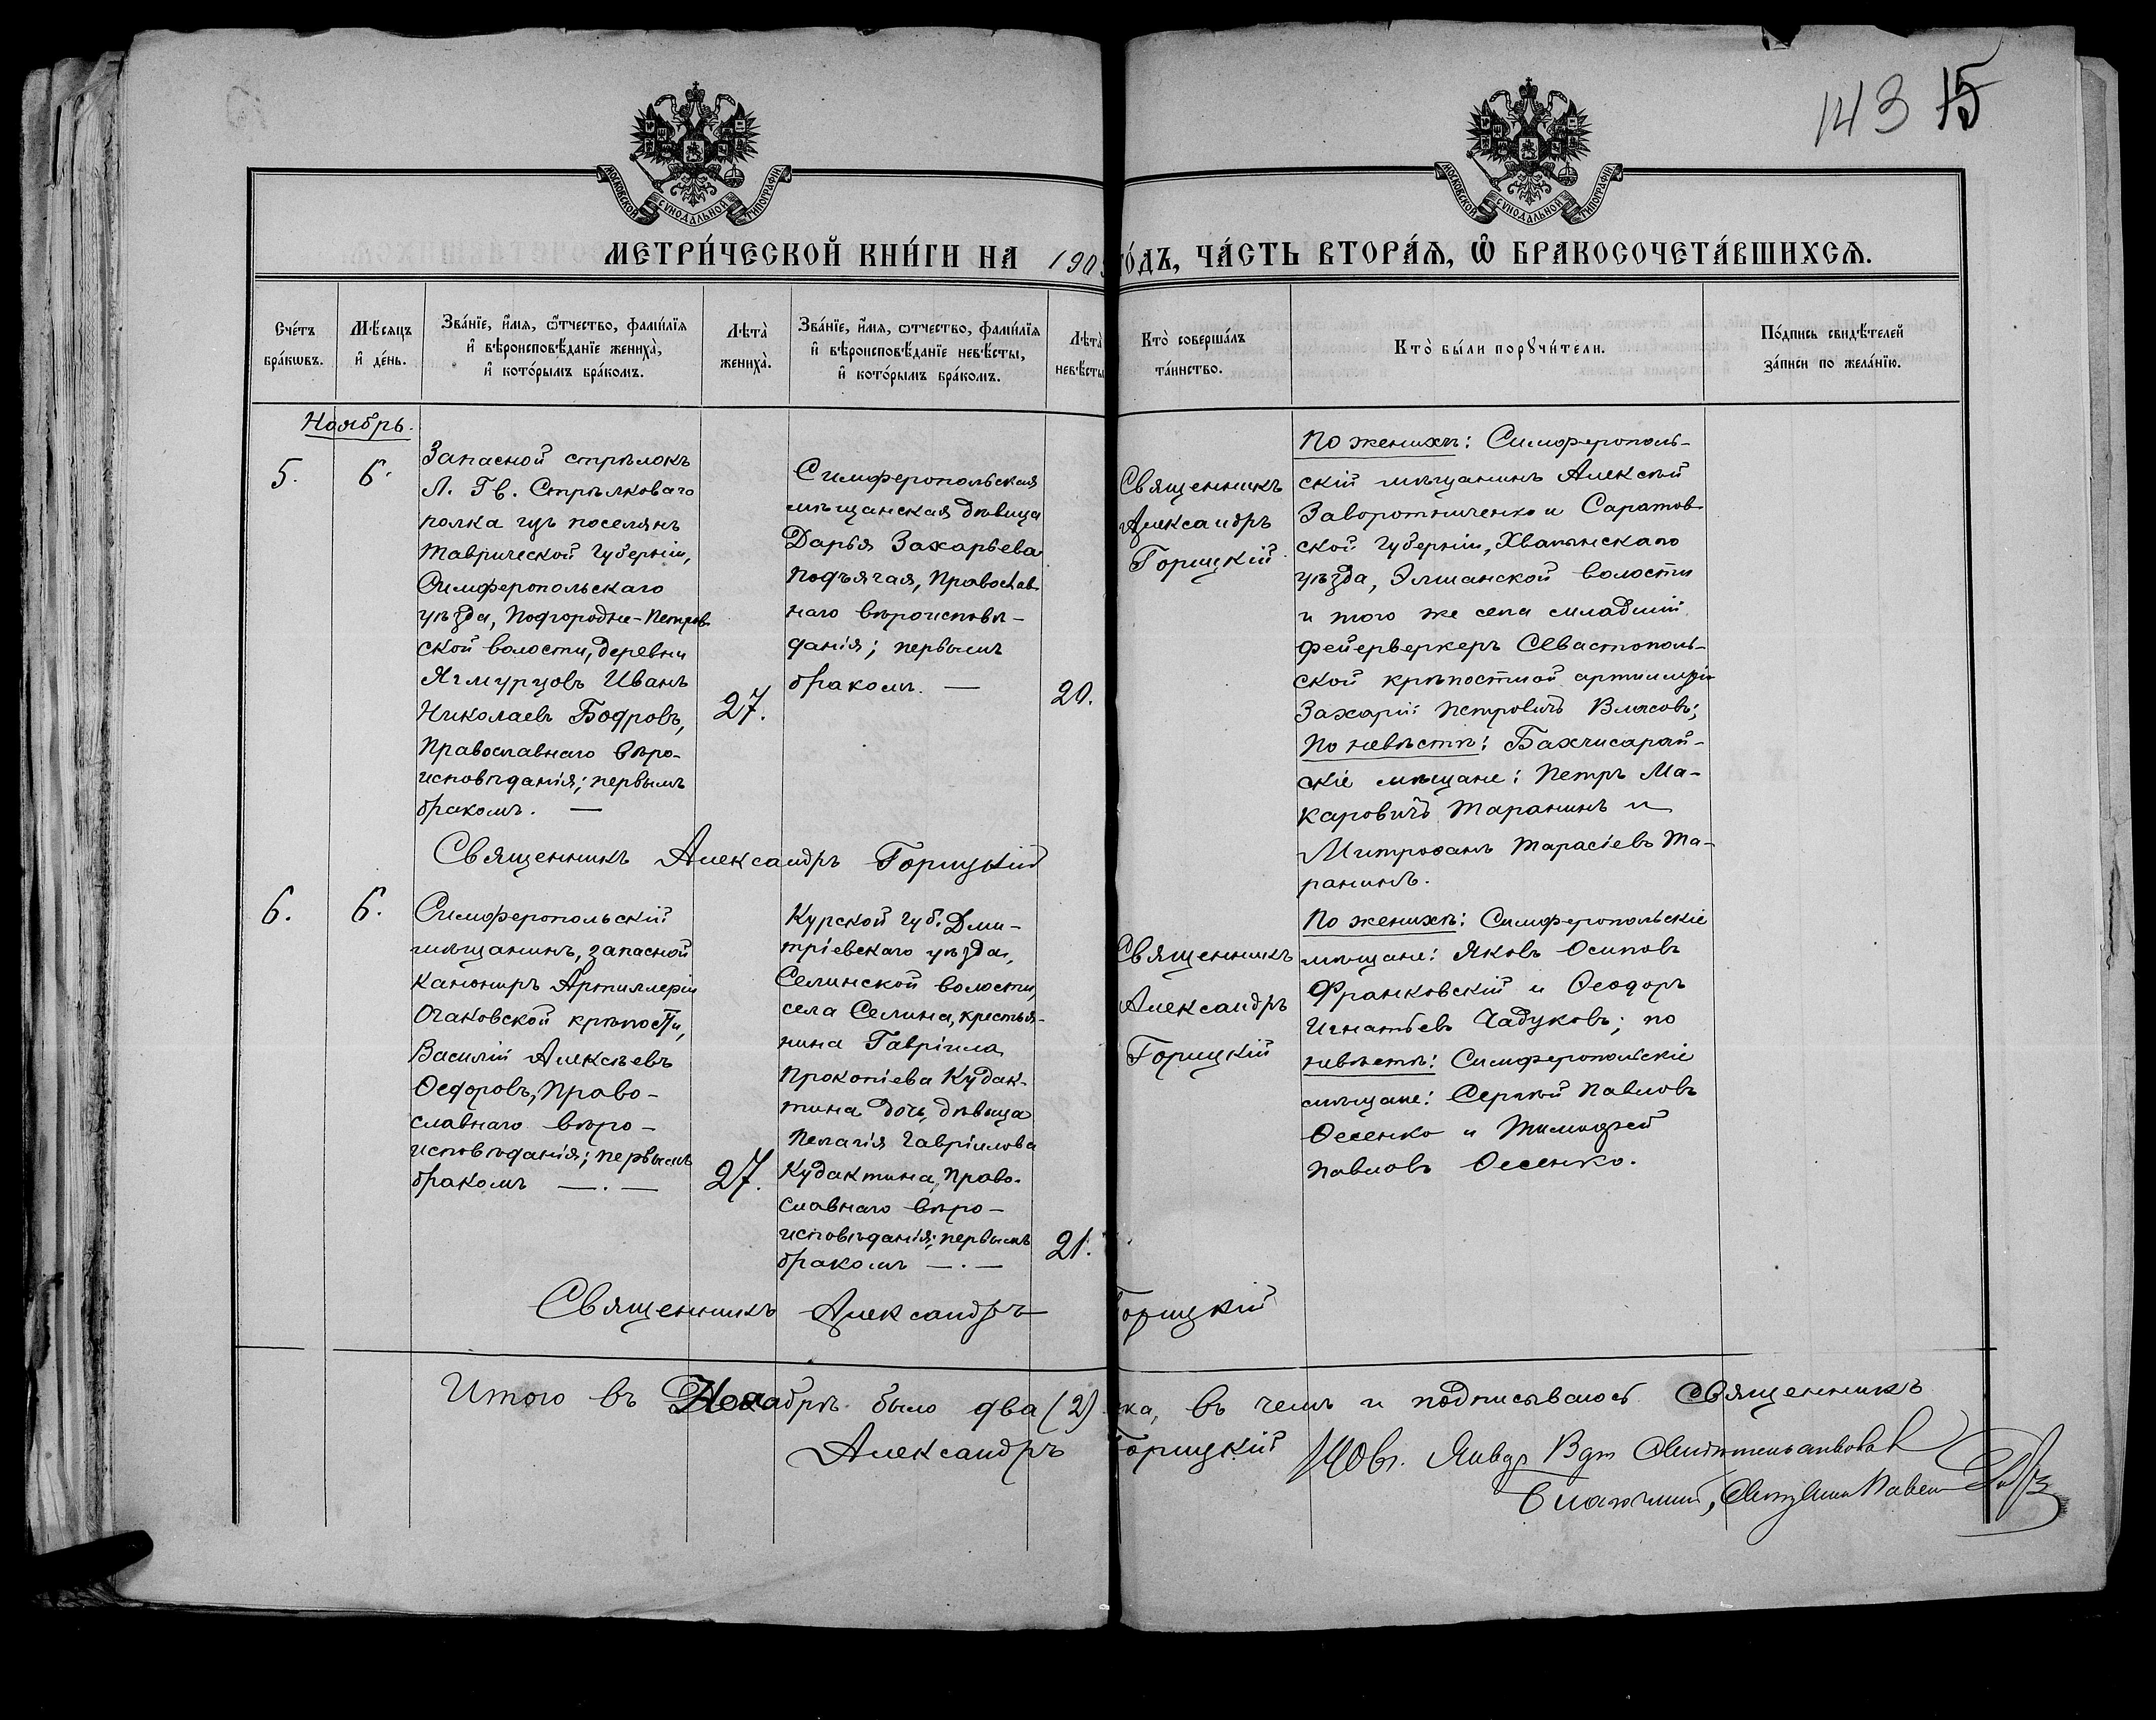 143 15
МОСКОВСКОЙ СѴНОДАЛЬНОЙ ТИПОГРАФІИ
МОСКОВСКОЙ СѴНОДАЛЬНОЙ ТИПОГРАФІИ
МЕТРИ́ЧЕСКОЙ КНИ́ГИ НА 190
ГО́ДЪ, ЧА́СТЬ ВТОРА́Ѧ, Ѡ҆ БРАКОСОЧЕТА́ВШИХСѦ.
Сче́тъ
бра́кѡвъ.
Мѣ́сѧцъ
и҆ де́нь.
Зва́нїе, и҆́мѧ, ѻ҆́тчество, фами́лїѧ
и҆ вѣроисповѣ́данїе жениха̀,
и҆ кото́рымъ бра́комъ.
Лѣта̀
жениха̀.
Зва́нїе, и҆́мѧ, ѻ҆́тчество, фами́лїѧ
и҆ вѣроисповѣ́данїе невѣ́сты,
и҆ кото́рымъ бра́комъ.
Лѣта̀
невѣ́сты
Кто̀ соверша́лъ
та́инство.
Кто̀ бы́ли порꙋчи́тели.
По́дпись свидѣ́телей
за́писи по жела́нїю.
Ноябрь.
5.
6.
Запасной стрѣлокъ
Л. Гв. Стрѣлковаго
полка изъ поселянъ
Таврической губерніи,
Симферопольскаго
уѣзда, Подгородне-Петров
ской волости, деревни
Ягмурцовъ Иванъ
Николаевъ Бодровъ,
Православнаго вѣро-
исповѣданія; первымъ
бракомъ. —
27.
Симферопольская
мѣщанская дѣвица
Дарья Захарьева
Подъячая, Православ
наго вѣроисповѣ-
данія; первымъ
бракомъ. —
20.
Священникъ
Александръ
Горицкій
По женихѣ: Симферополь-
скій мѣщанинъ Алексѣй
Заворотниченко и Саратов
ской губерніи, Хвалынскаго
уѣзда, Элшанской волости
и того же села младшій
фейерверкеръ Севастополь-
ской крѣпостной артиллеріи
Захарій Петровичъ Власовъ;
По невѣстѣ: Бахчисарай-
скіе мѣщане: Петръ Ма-
каровичъ Таранинъ и
Митрофанъ Тарасіевъ Та-
ранинъ.
Священникъ Александръ Горицкій
6.
6.
Симферопольскій
мѣщанинъ, запасной
канониръ Артиллеріи
Очаковской крѣпости,
Василій Алексѣевъ
Ѳедоровъ, Право-
славнаго вѣро-
исповѣданія; первымъ
бракомъ —.—
27.
Курской губ. Дми-
тріевскаго уѣзда,
Селинской волости,
села Селина, крестья-
нина Гавріила
Прокопіева Кудак-
тина дочь, дѣвица
Пелагія Гавріилова
Кудактина, Право-
славнаго вѣро-
исповѣданія; первымъ
бракомъ —.—
21.
Священникъ
Александръ
Горицкій
По женихѣ: Симферопольскіе
мѣщане: Яковъ Осиповъ
Франковскій и Ѳеодоръ
Игнатьевъ Чадуковъ; по
невѣстѣ: Симферопольскіе
мѣщане: Сергѣй Павловъ
Ѳесенко и Тимофей
Павловъ Ѳесенко.
Священникъ Александръ Горицкій
Итого въ Ноябрѣ было два (2) ка, въ чемъ и подписываюсь Священникъ
Александръ Горицкій